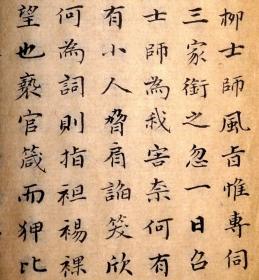 柳士師風旨惟專伺
三家銜之忽一日召
士師為我害奈何有
有小人脅肩諂笑欣
何為詞則指袒裼裸
望也褻官箴而狎比